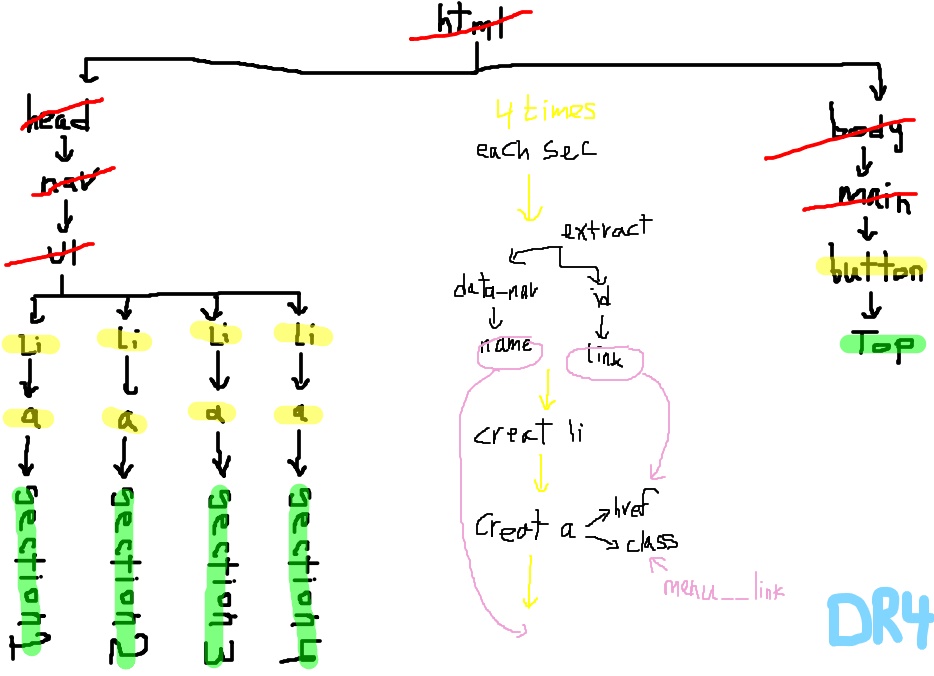 html
head
nav
ul
li
a
section 1
li
a
section 2
li
a
section 3
li
a
section 4
4 times
each sec
extract
data-nav
name
id
link
creat li
creat a
href
class
menu__link
body
main
button
Top
DR4